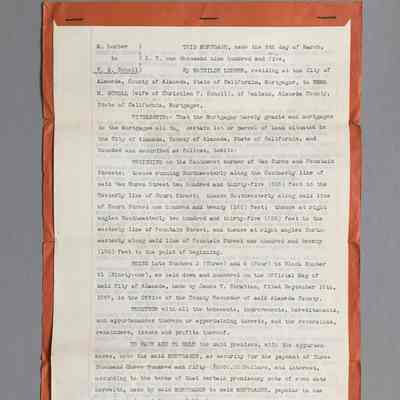 M. Lueber ) THIS MORTGAGE, made the 6th day of March,
to ) A. D. one thousand nine hundred and five,
E. M. Scholl) By MATHILDE LUEBER, residing at the City of
Alameda, County of Alameda, State of California, Mortgagor, to EMMA
M. SCHOLL (wife of Christian F. Scholl), of Alameda County,
State of California, Mortgagee,
WITNESSETH: That the Mortgagor hereby grants and mortgages
to the Mortgagee all certain lot or parcel of land situated in
the City of Alameda, County of Alameda, State of California, and
bounded and described as follows, towit:
BEGINNING on the Southwest corner of Van Buren and Fountain
Streets; thence running Northwesterly along the Southerly line of
said Van Buren Street two hundred and thirty-five (235) feet to the
Easterly line of Court Street; thence Southwesterly along said line
of Court Street one hundred and twenty (120) feet; thence at right
angles Southeasterly two hundred and thirty-five (235) feet to the
westerly line of Fountain Street, and thence at right angles
easterly along said line of Fountain Street one hundred and twenty
(120) feet to the point of beginning.
BEING Lots Numbers 3 (Three) and 4 (Four) in Block Number
91 (Ninety-one), as laid down and numbered on the Official Map of
said City of Alameda, made by James T. filed September
in the Office of the County Recorder of said Alameda County.
TOGETHER with all the tenements, improvements, hereditaments,
and appurtenances thereon or appertaining thereto, and the reversions,
remainders, issues and profits thereof.
TO HAVE AND TO HOLD the said premises, with the appurten-
ances, unto the said MORTGAGEE, as security for the payment of Three
Thousand Three Hundred and Fifty Dollars, and interest,
according to the terms of that certain promissory note of even date
herewith, made by said MORTGAGOR to said MORTGAGEE, payable in the